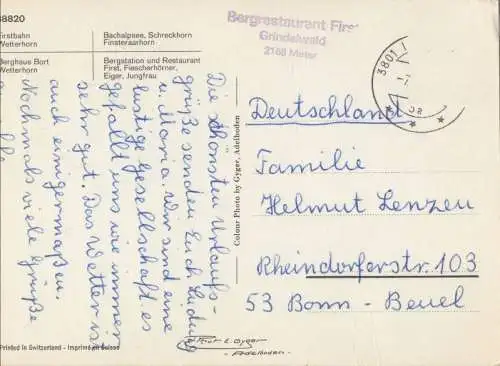 38820
Firstbahn
Wetterhorn
Bachalpsee, Schreckhorn
Finsteraarhorn
Berghaus Bort
Wetterhorn
Bergstation und Restaurant
First, Fiescherhörner,
Eiger, Jungfrau
Bergrestaurant First
Grindelwald
2168 Meter
3801
Die schönsten Urlaubs-
grüße senden Euch Ludwig
u. Maria. Wir sind eine
lustige Gesellschaft es
gefällt uns wie immer
sehr gut. Das Wetter ist
auch einigermaßen.
Nochmals viele Grüße
Colour Photo by Gyger, Adelboden
Deutschland
Familie
Helmut Lenzen
Rheindorferstr. 103
53 Bonn-Beuel
Printed in Switzerland - Imprimé en Suisse
E. Gyger
Adelboden